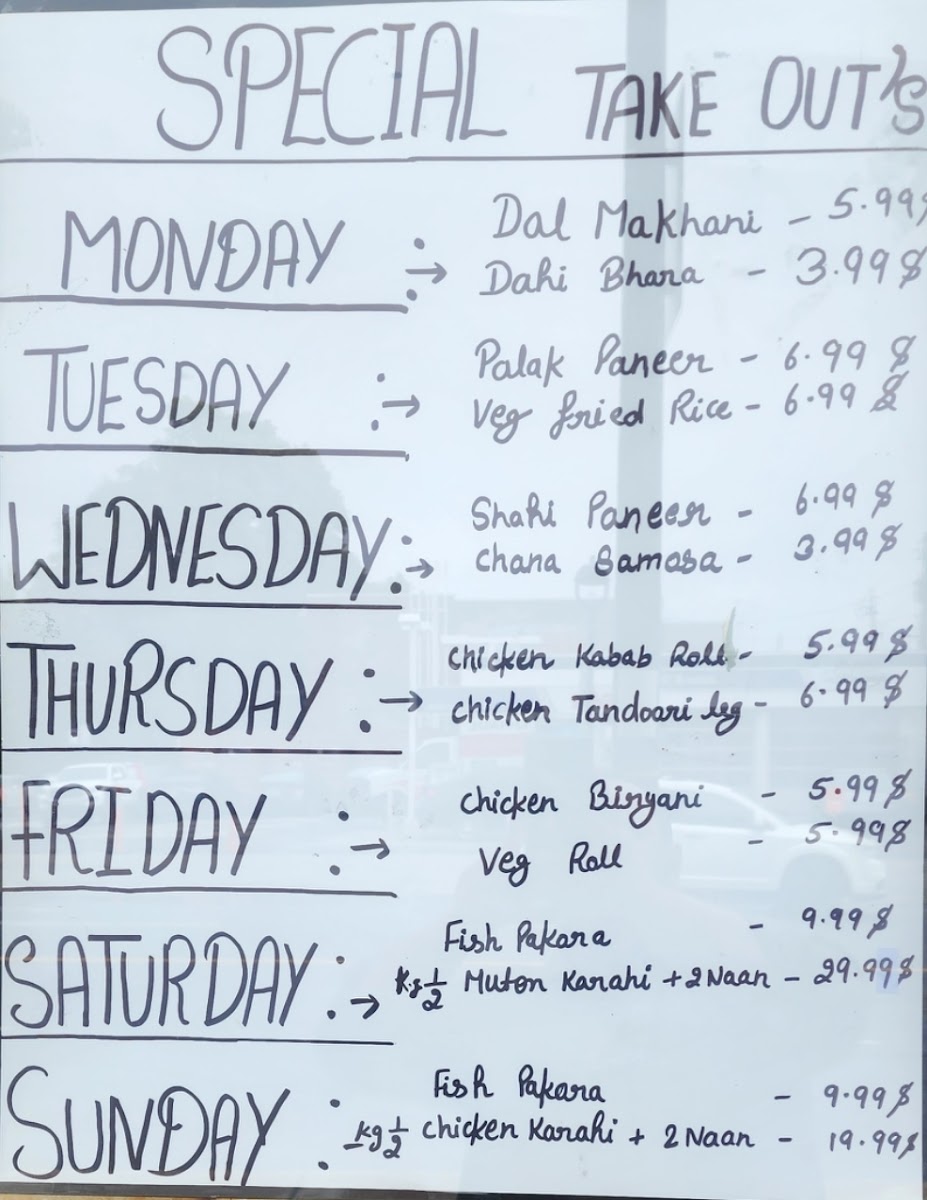 SPECIAL TAKE OUT'S
MONDAY :→ Dal Makhani - 5.99$
Dahi Bhara - 3.99$
TUESDAY :→ Palak Paneer - 6.99 $
Veg fried Rice - 6.99 $
WEDNESDAY :→ Shahi Paneer - 6.99 $
Chana Samosa - 3.99 $
THURSDAY :→ Chicken Kabab Roll - 5.99 $
Chicken Tandoori leg - 6.99 $
FRIDAY :→ Chicken Biryani - 5.99 $
Veg Roll - 5.99$
SATURDAY :→ Fish Pakara - 9.99 $
Kg ½ Muton Karahi + 2 Naan - 29.99$
SUNDAY : Fish Pakara - 9.99 $
kg ½ chicken Karahi + 2 Naan - 19.99$